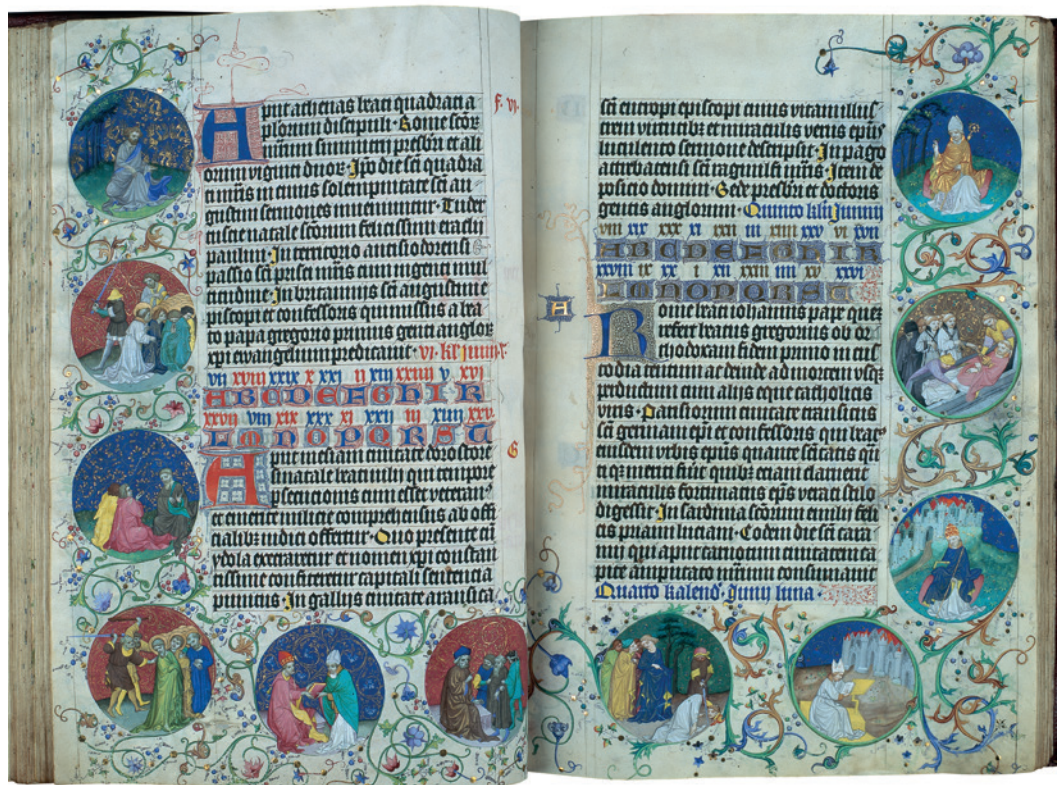 Aput athenas beati quadrati a
plorum discipuli· Rome scōꝝ
mrum simmitrij presbri et ali
orum viginti duor· Ipo die scī quadra
ti mris in cuius solempnitate scī au
gustini sermones inueniuntur· Tuder
tuscie natale scōrum felicissimi eraclij
paulini· In territorio autisiodorensi
passio scī prisci mris cum ingenti mul
titudine· In britannijs scī augustini e
piscopi et confessoris qui missus a bea
to papa gregorio primus genti angloꝝ
xpi ewangelium predicauit· vi· kl' iunij·
vii xviii xxix x xxi ii xiii xxiiii v xvi
A B C D E F G H I K
xxvii viii xix xxx xi xxii iii xiiii xxv
L M N O P Q R S T
Aput mesiam ciuitate dorostore
natale beati iulij qui tempore
psecucionis cum esset veteran'
et emerite milicie comprehensus ab offi
cialibꝫ iudici offertur· Quo presente et
ydola execraretur et nomen xpi constan
tissime confiteretur capitali sentencia
punitus· In gallijs ciuitate arausica
F. vi.
G
scī eutropi episcopi cuius vitam illus
trem virtutibꝫ et miraculis verus epūs
luculento sermone descripsit· In pago
attrebacensi scī ragnulfi mris· Item de
posicio domini· Bede presbri et doctoris
gentis anglorum· Quinto kl' Junij
viii xix xxx xi xxii iii xiiii xxv vi xvii
A B C D E F G H I K
xxviii ix xx i xii xxiii iiii xv xxvi
L M N O P Q R S T
A
Rome beati iohannis pape quem
refert beatus gregorius ob or
thodoxam fidem primo in cus
todia tentum ac deinde ad mortem vsqꝫ
perductum cum alijs eque catholicis
viris· Parisiorum ciuitate transitus
scī germani epi et confessoris qui beat'
eiusdem vrbis epūs quante scītatis qui
et qꝫ meriti fuerit quibꝫ etiam claruerit
miraculis fortunatus epūs veraci stilo
digessit· In sardinia scōrum emilij feli
cis priami luciani· Eodem die scī cara
uni qui aput carnotum ciuitatem ca
pite amputato mrium consumauit
Quarto kalend· Junij luna·